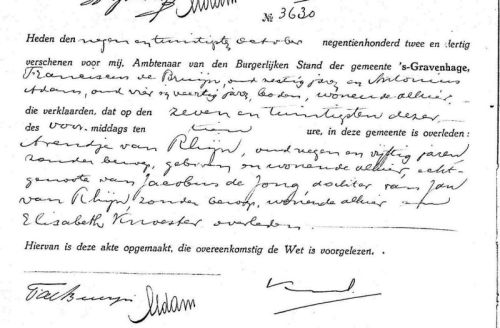 Adam
№ 3630
Heden den negen en twintigste October negentienhonderd twee en dertig
verschenen voor mij, Ambtenaar van den Burgerlijken Stand der gemeente 's-Gravenhage,
Franciscus de Bruijn, oud zestig jaar, en Antonius
Adam, oud vier en veertig jaar, boden, wonende alhier,
die verklaarden, dat op den zeven en twintigsten dezer
des voormiddags ten tien ure, in deze gemeente is overleden:
Arendje van Rhijn, oud negen en vijftig jaren
zonder beroep, geboren en wonende alhier, echt-
genoote van Jacobus de Jong, dochter van Jan
van Rhijn zonder beroep, wonende alhier en
Elisabeth Knoester overleden.
Hiervan is deze akte opgemaakt, die overeenkomstig de Wet is voorgelezen.
Adam